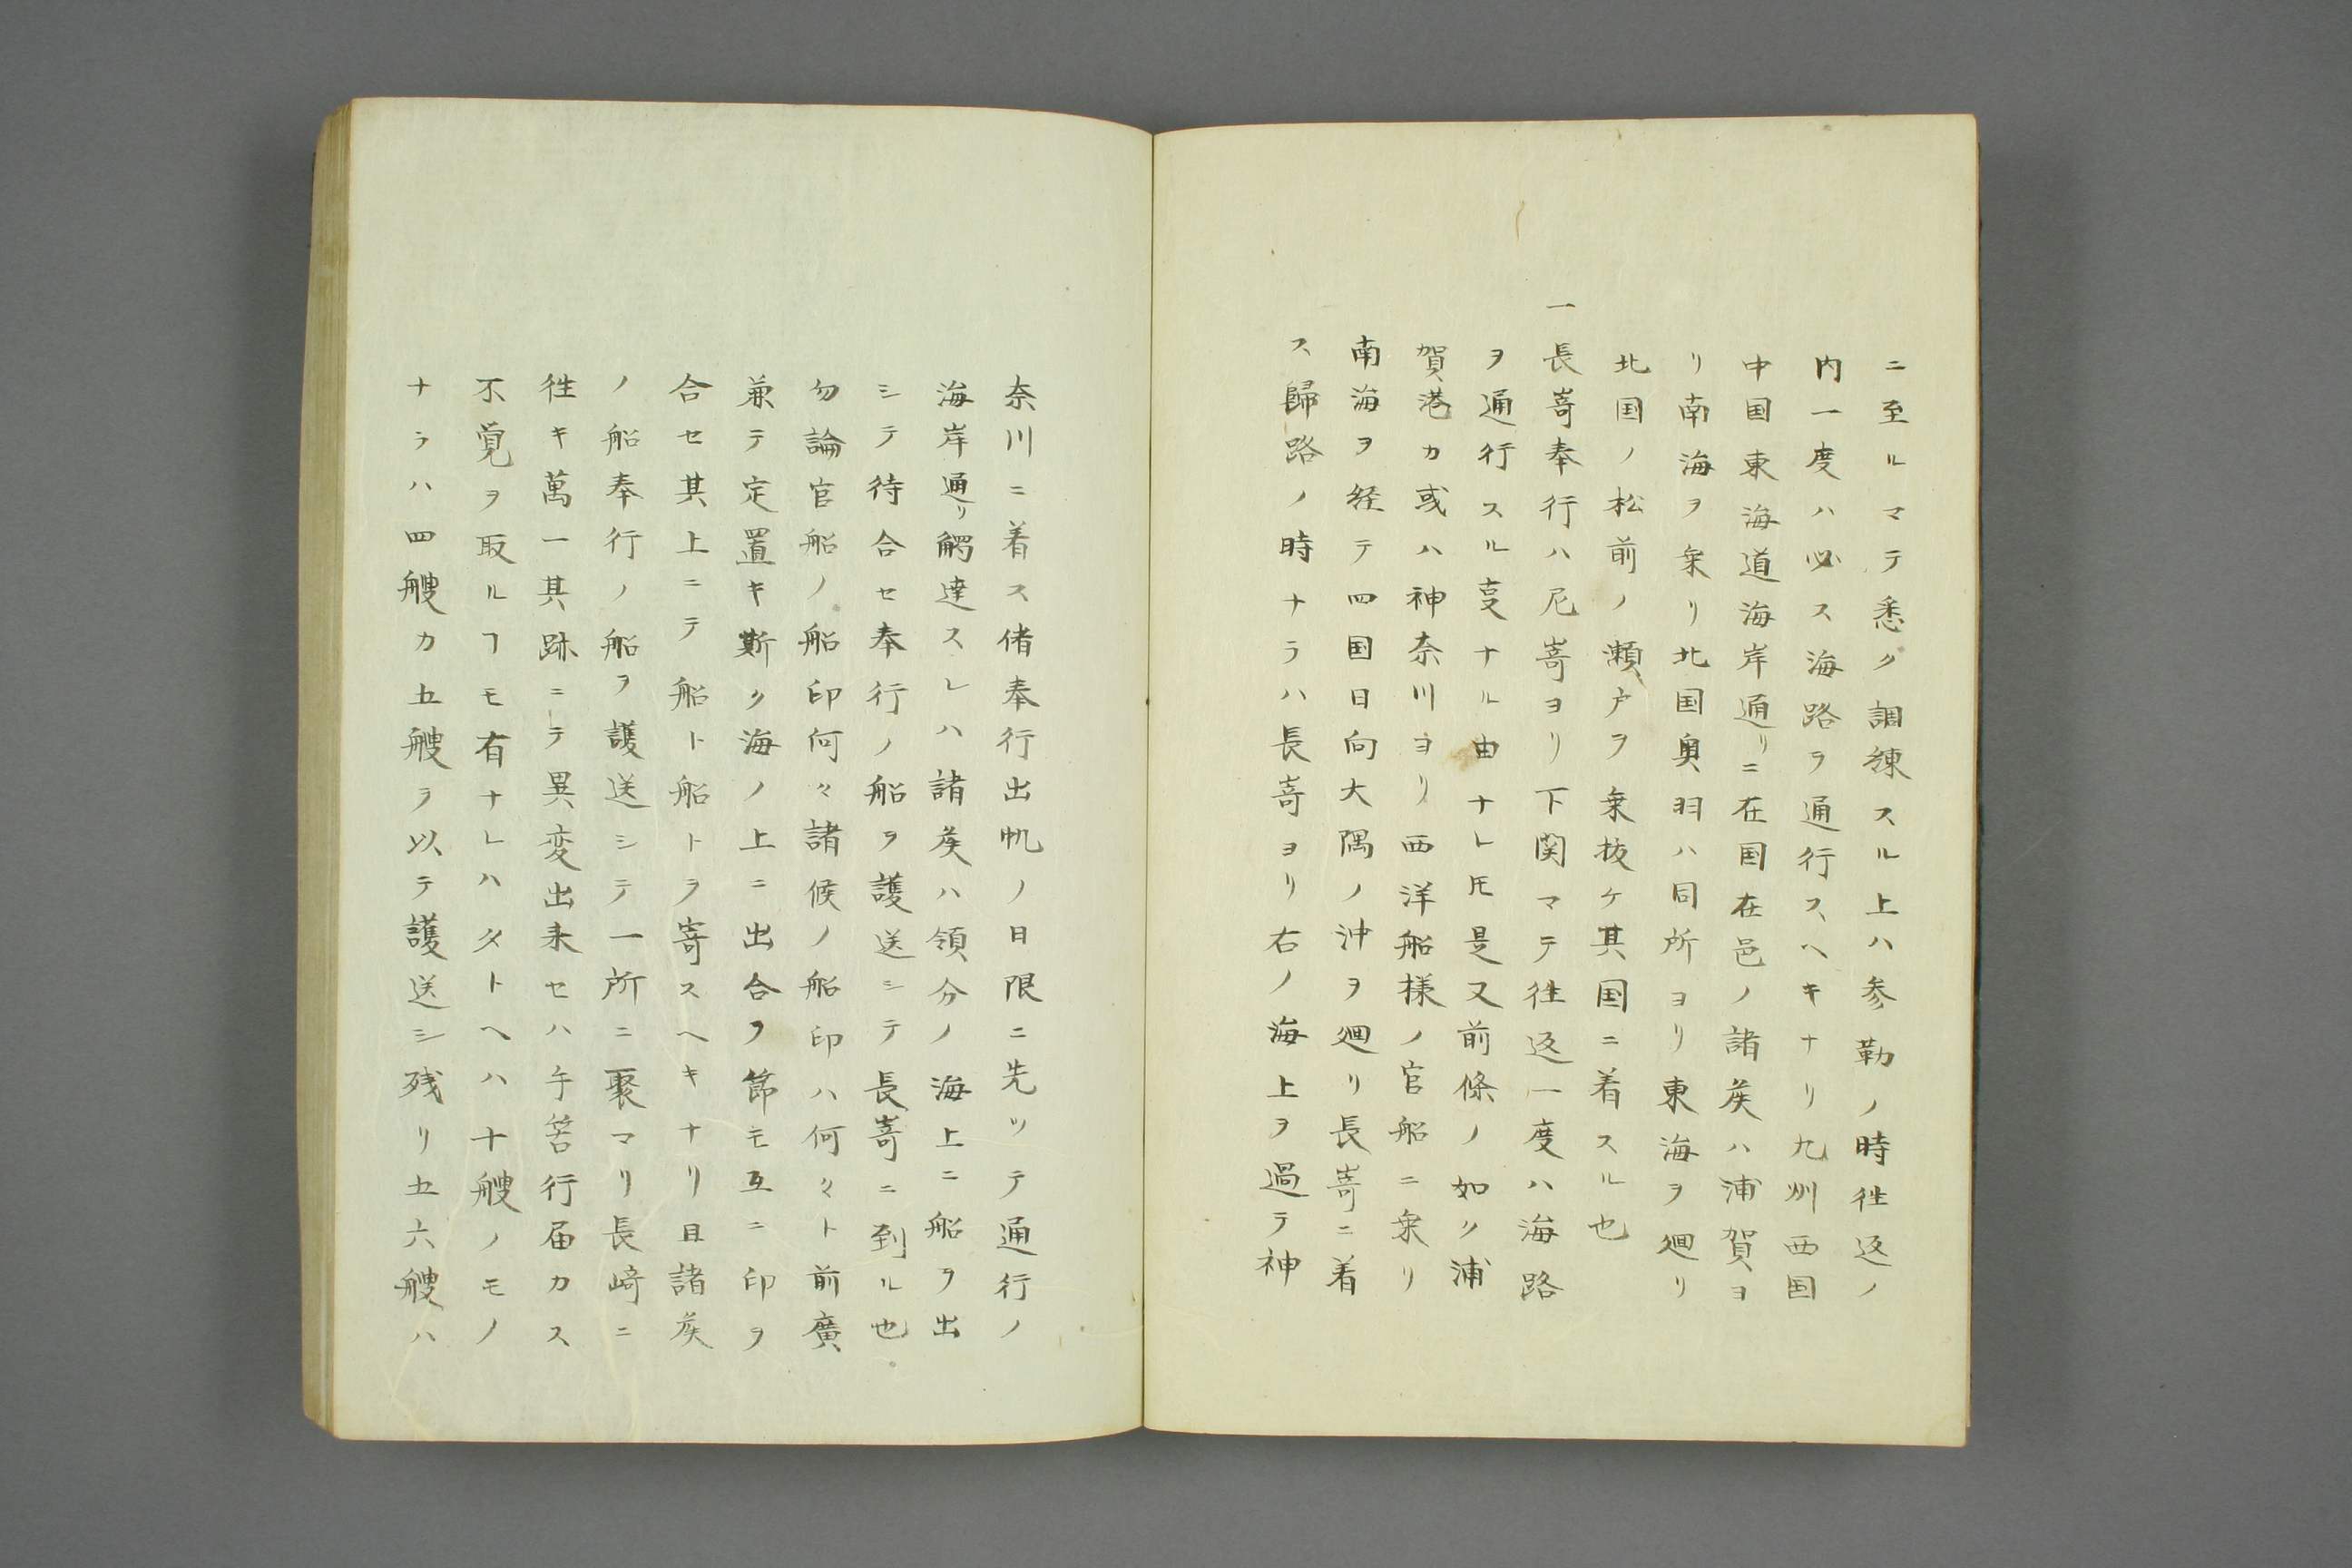 ニ至ルマテ悉ク調練スル上ハ参勤ノ時徃返ノ
内一度ハ必ス海路ヲ通行スヘキナリ九州西国
中国東海道海岸通リニ在国在邑ノ諸矦ハ浦賀ヨ
リ南海ヲ乗リ北国奥羽ハ同所ヨリ東海ヲ廻リ
北国ノ松前ノ瀬戸ヲ乗抜ケ其国ニ着スル也
一長嵜奉行ハ尼嵜ヨリ下関マテ徃返一度ハ海路
ヲ通行スル叓ナル由ナレ𪜈是又前條ノ如ク浦
賀港カ或ハ神奈川ヨリ西洋船様ノ官船ニ乗リ
南海ヲ経テ四国日向大隅ノ沖ヲ廻リ長嵜ニ着
ス歸路ノ時ナラハ長嵜ヨリ右ノ海上ヲ過テ神
奈川ニ着ス偖奉行出帆ノ日限ニ先ツテ通行ノ
海岸通リ觸達スレハ諸矦ハ領分ノ海上ニ船ヲ出
シテ待合セ奉行ノ船ヲ護送シテ長嵜ニ到ル也
勿論官船ノ船印何々諸候ノ船印ハ何々ト前廣
兼テ定置キ斯ク海ノ上ニ出合フ節モ互ニ印ヲ
合セ其上ニテ船ト船トヲ寄スヘキナリ且諸矦
ノ船奉行ノ船ヲ護送シテ一所ニ聚マリ長﨑ニ
徃キ萬一其跡ニテ異変出来セハ手筈行届カス
不覚ヲ取ルヿモ有ナレハタトヘハ十艘ノモノ
ナラハ四艘カ五艘ヲ以テ護送シ残リ五六艘ハ